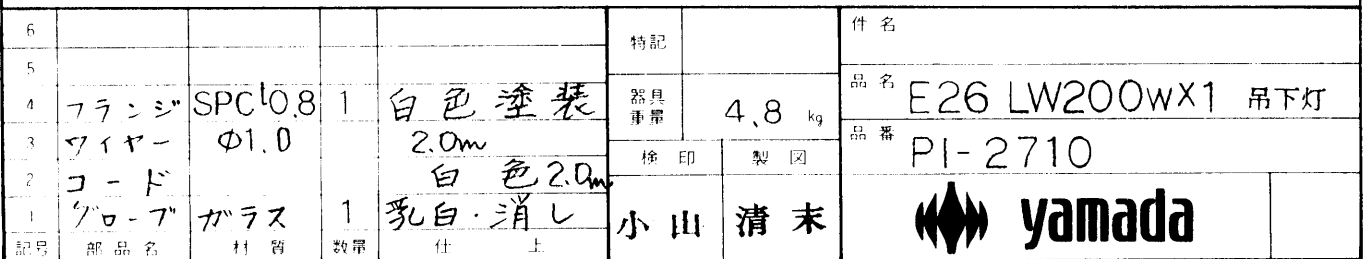 6
5
4 フランジ SPC t0.8 1 白色塗装
3 ワイヤー Φ1.0 2.0m
2 コード 白色2.0m
1 グローブ ガラス 1 乳白・消し
記号 部品名 材質 数量 仕上
特記
器具重量 4.8 kg
検印 製図
小山 清末
件名
品名 E26 LW200W×1 吊下灯
品番 PI-2710
yamada